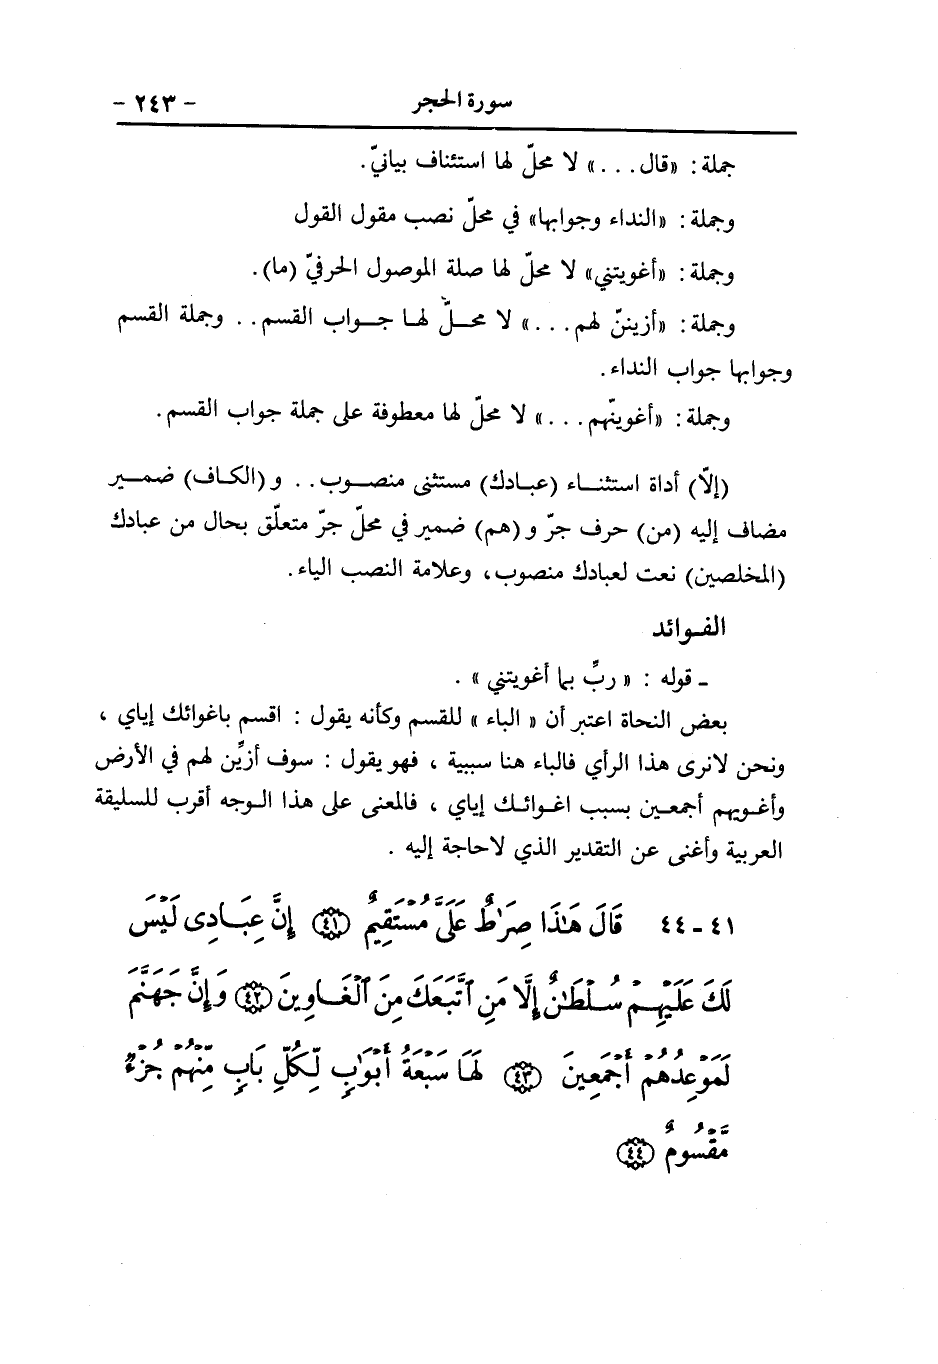 سورة الحجر - ٢٤٣ -
جملة: «قال...» لا محلّ لها استئناف بيانيّ.
وجملة: «النداء وجوابها» في محلّ نصب مقول القول
وجملة: «أغويتني» لا محلّ لها صلة الموصول الحرفيّ (ما).
وجملة: «أزيننّ لهم...» لا محلّ لها جواب القسم.. وجملة القسم
وجوابها جواب النداء.
وجملة: «أغوينّهم...» لا محلّ لها معطوفة على جملة جواب القسم.
(إلّا) أداة استثناء (عبادك) مستثنى منصوب.. و(الكاف) ضمير
مضاف إليه (من) حرف جرّ و(هم) ضمير في محلّ جرّ متعلّق بحال من عبادك
(المخلصين) نعت لعبادك منصوب، وعلامة النصب الياء.
الفوائد
ـ قوله : « ربِّ بما أغويتني » .
بعض النحاة اعتبر أن « الباء » للقسم وكأنه يقول : اقسم باغوائك إياي ،
ونحن لانرى هذا الرأي فالباء هنا سببية ، فهو يقول : سوف أزيِّن لهم في الأرض
وأغويهم أجمعين بسبب اغوائك إياي ، فالمعنى على هذا الوجه أقرب للسليقة
العربية وأغنى عن التقدير الذي لاحاجة إليه .
٤١ - ٤٤ قَالَ هَٰذَا صِرَٰطٌ عَلَىَّ مُسْتَقِيمٌ ﴿٤١﴾ إِنَّ عِبَادِى لَيْسَ
لَكَ عَلَيْهِمْ سُلْطَٰنٌ إِلَّا مَنِ ٱتَّبَعَكَ مِنَ ٱلْغَاوِينَ ﴿٤٢﴾ وَإِنَّ جَهَنَّمَ
لَمَوْعِدُهُمْ أَجْمَعِينَ ﴿٤٣﴾ لَهَا سَبْعَةُ أَبْوَٰبٍ لِّكُلِّ بَابٍ مِّنْهُمْ جُزْءٌ
مَّقْسُومٌ ﴿٤٤﴾